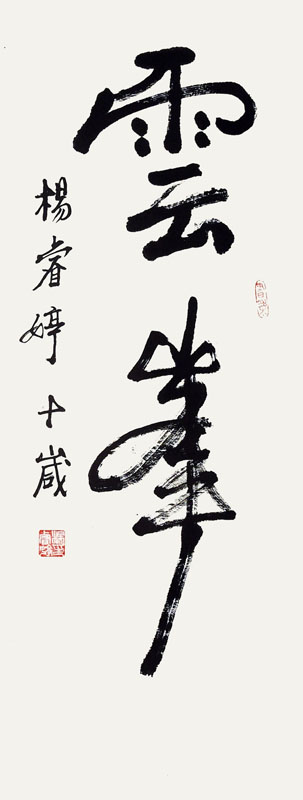 雲峯
楊睿婷十歲